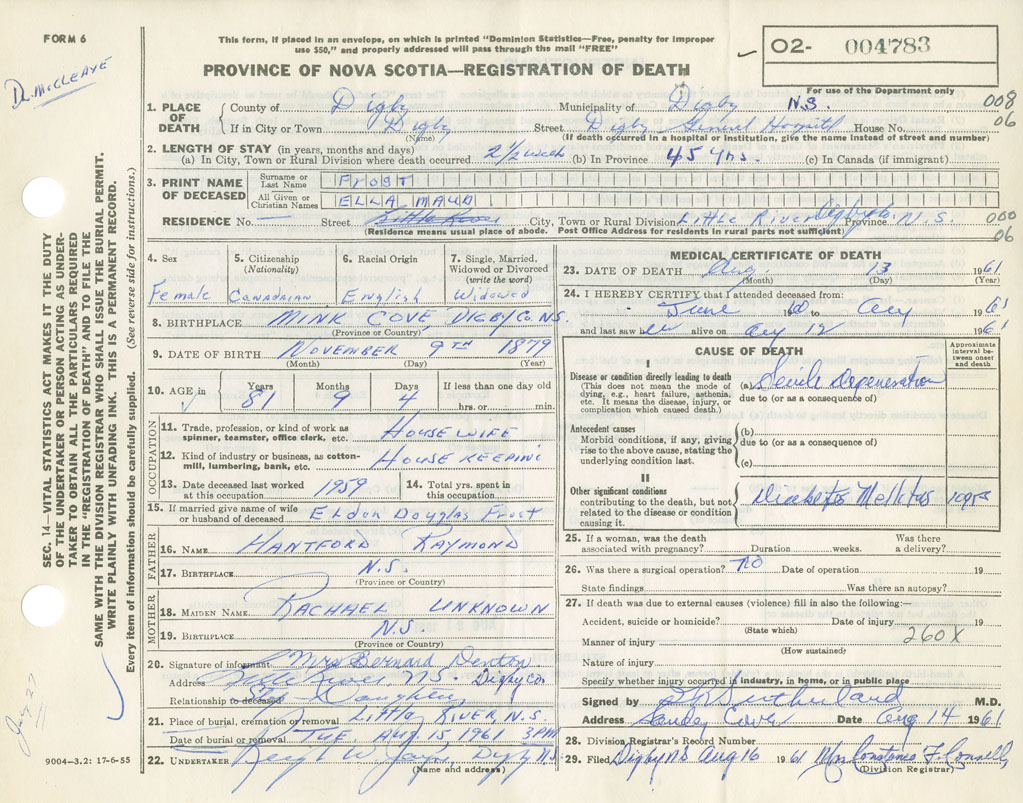 FORM 6
Dr. McCleave
This form, if placed in an envelope, on which is printed "Dominion Statistics—Free, penalty for improper
use $50," and properly addressed will pass through the mail "FREE"
PROVINCE OF NOVA SCOTIA—REGISTRATION OF DEATH
02- 004783
For use of the Department only
008
06
1. PLACE OF DEATH
County of Digby Municipality of Digby N.S.
If in City or Town Digby Street Digby General Hospital House No.
(Name) (If death occurred in a hospital or institution, give the name instead of street and number)
2. LENGTH OF STAY (in years, months and days)
(a) In City, Town or Rural Division where death occurred 2½ week (b) In Province 45 yrs. (c) In Canada (if immigrant)
3. PRINT NAME OF DECEASED
Surname or Last Name FROST
All Given or Christian Names ELLA MAUD
RESIDENCE No. — Street Little River City, Town or Rural Division Little River Digby Co. Province N.S.
(Residence means usual place of abode. Post Office Address for residents in rural parts not sufficient)
000
06
4. Sex Female
5. Citizenship (Nationality) Canadaian
6. Racial Origin English
7. Single, Married, Widowed or Divorced (write the word) Widowed
8. BIRTHPLACE MINK COVE, DIGBY Co. NS.
(Province or Country)
9. DATE OF BIRTH NOVEMBER 9TH 1879
(Month) (Day) (Year)
10. AGE in Years 81 Months 9 Days 4 If less than one day old hrs. or min.
OCCUPATION
11. Trade, profession, or kind of work as spinner, teamster, office clerk, etc. HOUSE WIFE
12. Kind of industry or business, as cotton-mill, lumbering, bank, etc. HOUSE KEEPING
13. Date deceased last worked at this occupation 1959
14. Total yrs. spent in this occupation
15. If married give name of wife or husband of deceased Eldon Douglas Frost
FATHER
16. NAME HANTFORD RAYMOND
17. BIRTHPLACE N.S.
(Province or Country)
MOTHER
18. MAIDEN NAME RACHAEL UNKNOWN
19. BIRTHPLACE N.S.
(Province or Country)
20. Signature of informant Mrs Bernard Denton
Address Little River NS. Digby Co
Relationship to deceased Daughter
21. Place of burial, cremation or removal Little RIVER, N.S.
Date of burial or removal TUE. Aug 15 1961 3 PM
22. UNDERTAKER Digby N.S.
(Name and address)
MEDICAL CERTIFICATE OF DEATH
23. DATE OF DEATH Aug. 13 1961
(Month) (Day) (Year)
24. I HEREBY CERTIFY that I attended deceased from:
June 10 to Aug 1961
and last saw her alive on Aug 12 1961
CAUSE OF DEATH
Approximate interval between onset and death
I
Disease or condition directly leading to death
(This does not mean the mode of dying, e.g., heart failure, asthenia, etc. It means the disease, injury, or complication which caused death.)
(a) Senile Degeneration
due to (or as a consequence of)
Antecedent causes
Morbid conditions, if any, giving rise to the above cause, stating the underlying condition last.
(b)
due to (or as a consequence of)
(c)
II
Other significant conditions
contributing to the death, but not related to the disease or condition causing it.
Diabetes Mellitus 10 yrs
25. If a woman, was the death associated with pregnancy? Duration weeks. Was there a delivery?
26. Was there a surgical operation? No Date of operation 19
State findings Was there an autopsy?
27. If death was due to external causes (violence) fill in also the following:—
Accident, suicide or homicide? Date of injury 19
(State which)
260X
Manner of injury
(How sustained)
Nature of injury
Specify whether injury occurred in industry, in home, or in public place
Signed by Sutherland M.D.
Address Sandy Cove Date Aug 14 1961
28. Division Registrar's Record Number
29. Filed Digby NS Aug 16 1961 Mrs Constance F. Connelly
(Division Registrar)
SEC. 14 VITAL STATISTICS ACT MAKES IT THE DUTY
OF THE UNDERTAKER OR PERSON ACTING AS UNDER-
TAKER TO OBTAIN ALL THE PARTICULARS REQUIRED
IN THE "REGISTRATION OF DEATH" AND TO FILE THE
SAME WITH THE DIVISION REGISTRAR WHO SHALL ISSUE THE BURIAL PERMIT.
WRITE PLAINLY WITH UNFADING INK. THIS IS A PERMANENT RECORD.
Every item of information should be carefully supplied. (See reverse side for instructions.)
9004—3.2: 17-6-55